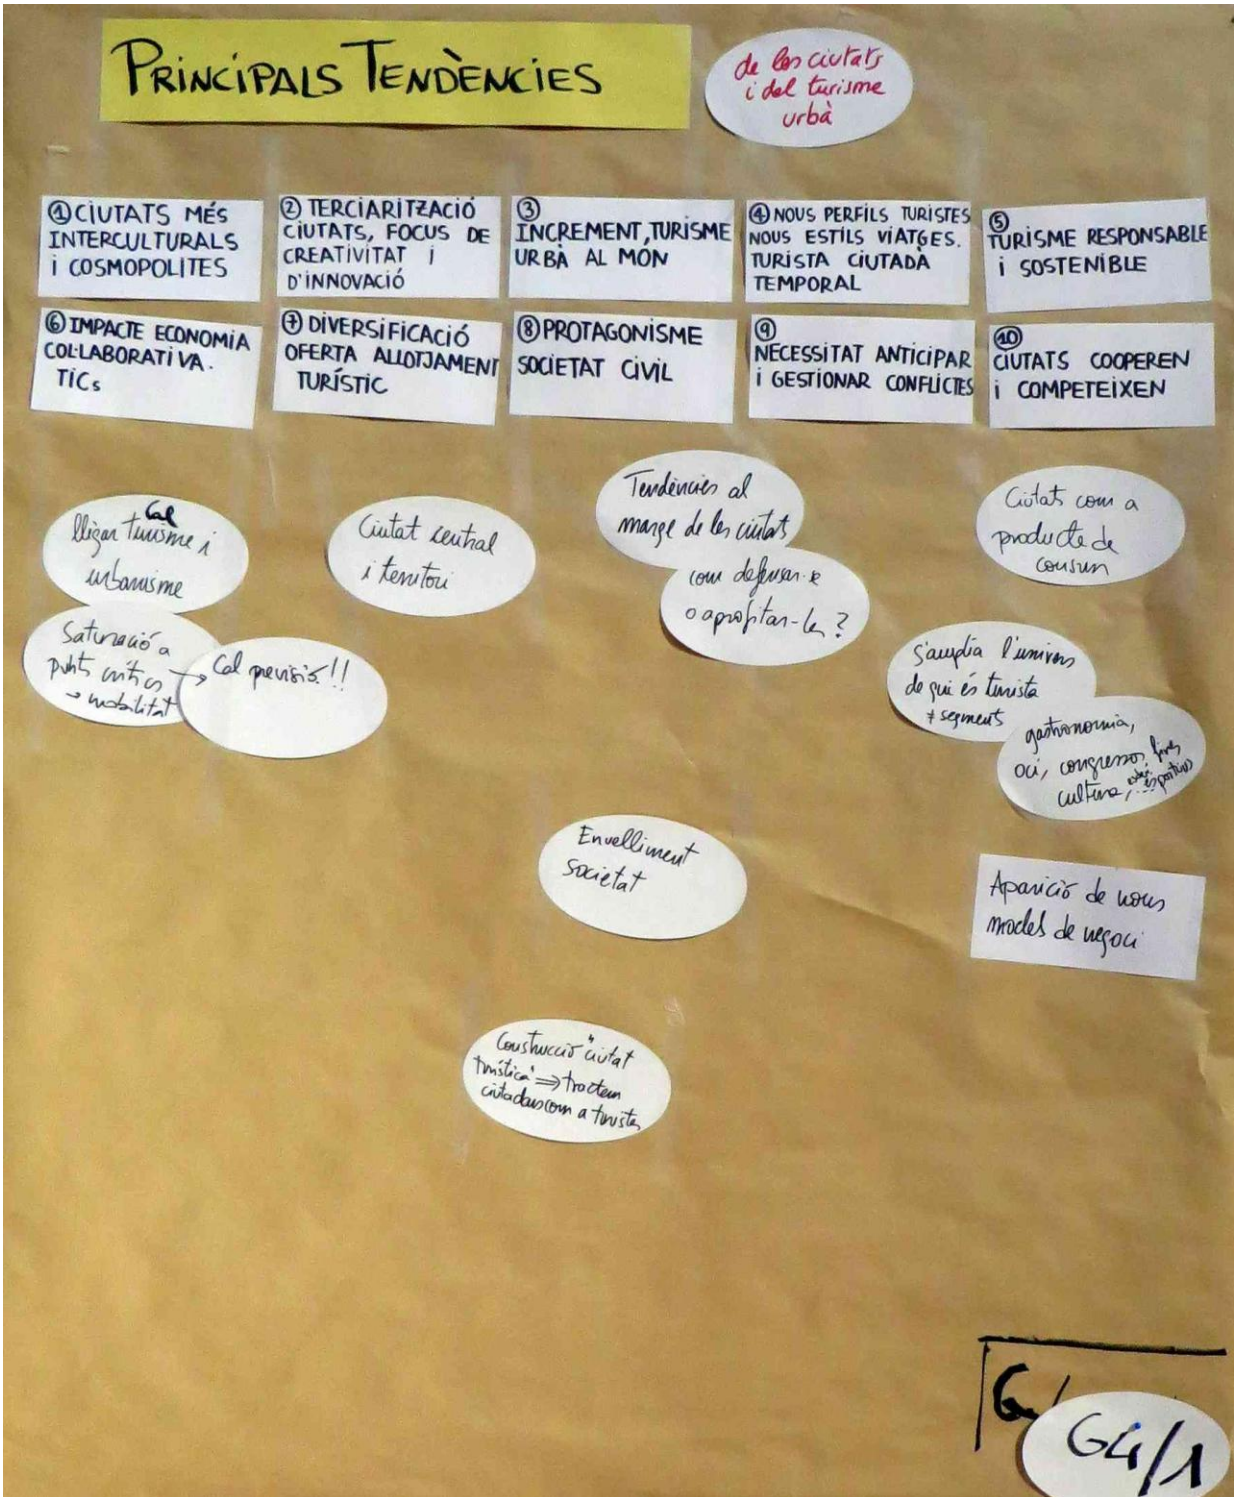 PRINCIPALS TENDÈNCIES
de les ciutats
i del turisme
urbà
① CIUTATS MÉS
INTERCULTURALS
i COSMOPOLITES
② TERCIARITZACIÓ
CIUTATS, FOCUS DE
CREATIVITAT i
D'INNOVACIÓ
③
INCREMENT, TURISME
URBÀ AL MÓN
④ NOUS PERFILS TURISTES
NOUS ESTILS VIATGES.
TURISTA CIUTADÀ
TEMPORAL
⑤
TURISME RESPONSABLE
i SOSTENIBLE
⑥ IMPACTE ECONOMIA
COL·LABORATIVA.
TICs
⑦ DIVERSIFICACIÓ
OFERTA ALLOTJAMENT
TURÍSTIC
⑧ PROTAGONISME
SOCIETAT CIVIL
⑨
NECESSITAT ANTICIPAR
i GESTIONAR CONFLICTES
⑩
CIUTATS COOPEREN
i COMPETEIXEN
Cal
lligar turisme i
urbanisme
Saturació a
punts crítics
→ mobilitat
→ Cal previsió!!
Ciutat central
i territori
Tendències al
marge de les ciutats
com defensar-se
o aprofitar-les?
Ciutats com a
producte de
consum
S'amplia l'univers
de qui és turista
≠ segments
gastronomia,
oci, congressos, fires
cultura, esportius
Envelliment
societat
Aparició de nous
models de negoci
Construcció "ciutat
turística" ⇒ tractem
ciutadans com a turistes
G4/1